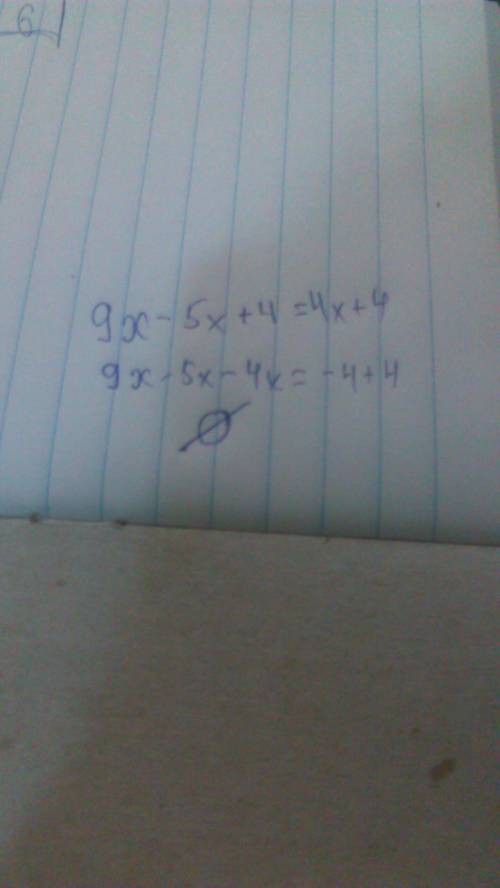 6
9x - 5x + 4 = 4x + 4
9x - 5x - 4x = -4 + 4
∅